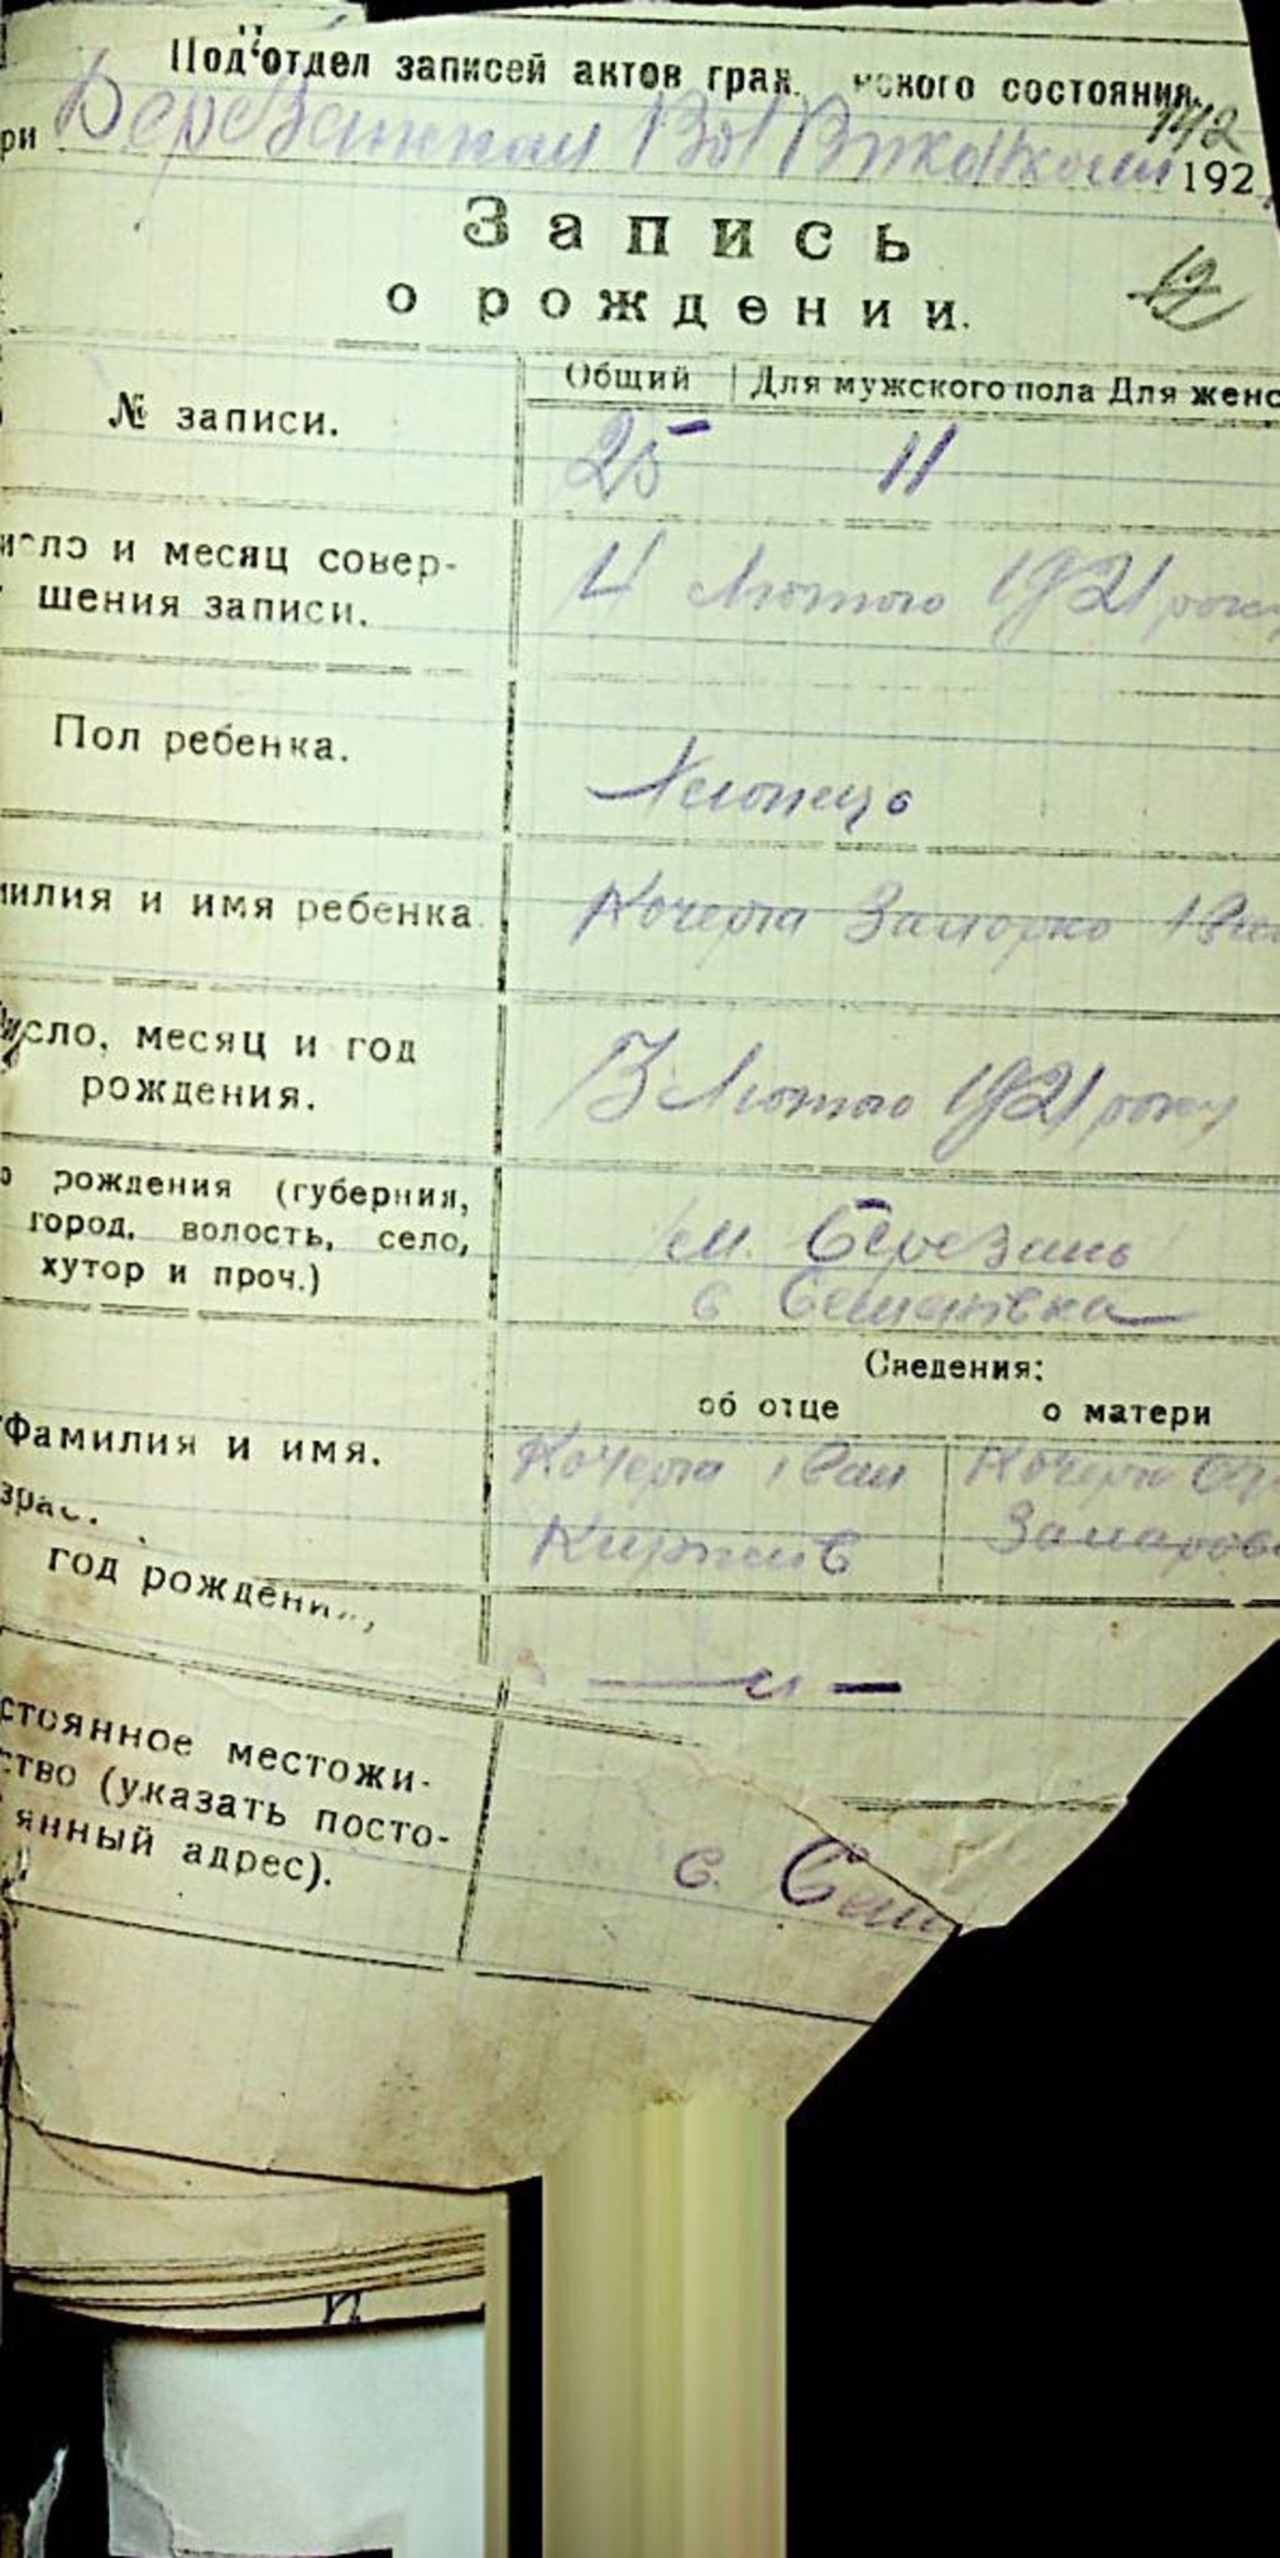 Под'отдел записей актов граж нского состояния.
142
ри Березанском 192
Запись
о рождении.
12
Общий Для мужского пола Для женс
№ записи. 25 11
исло и месяц совер-
шения записи.
4 Лютого 1921 року
Пол ребенка.
Хлопець
милия и имя ребенка
Кочерга Іван
исло, месяц и год
рождения.
3 Лютого 1921 року
о рождения (губерния,
город, волость, село,
хутор и проч.)
м. Березань
с Семенівка
Сведения:
об отце о матери
Фамилия и имя.
Кочерга Іван Кочерга
зрас.
год рождения,
— „ —
стоянное местожи-
ство (указать посто-
янный адрес).
с. Сем